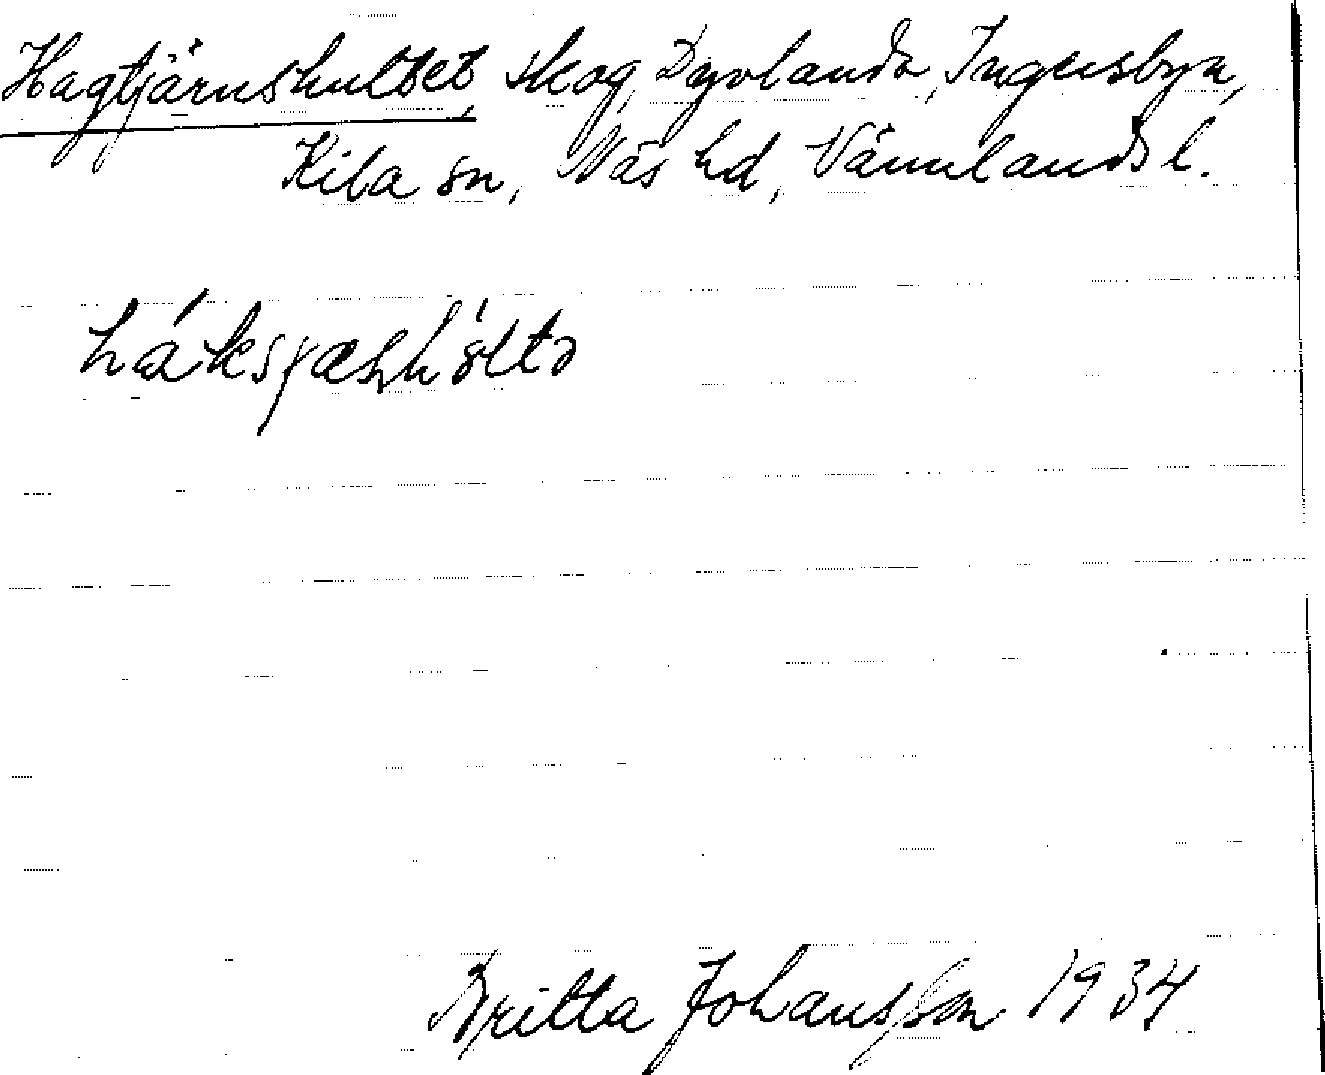 Hagtjärnshultet, skog, Dyvlanda, Ingersbyn,
Kila sn, Näs hd, Värmlands l.
Britta Johansson 1934